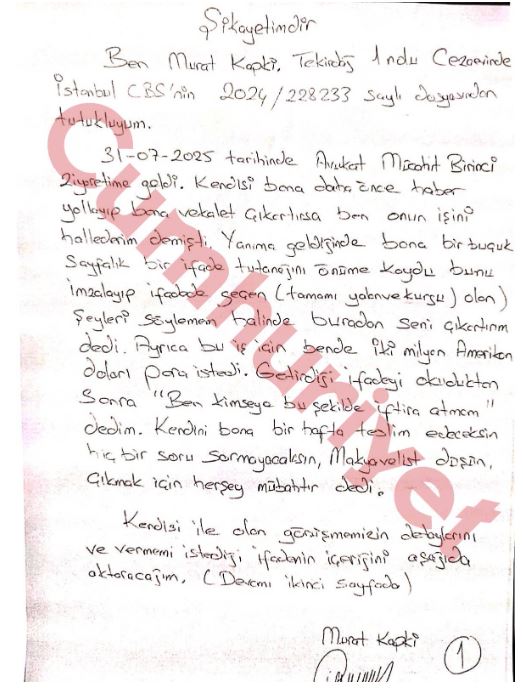 Şikayetimdir
Ben Murat Kapki, Tekirdağ 1 nolu Cezaevinde
İstanbul CBS'nin 2024/228233 sayılı dosyasından
tutukluyum.
31-07-2025 tarihinde Avukat Mücahit Birinci
ziyaretime geldi. Kendisi bana daha önce haber
yollayıp bana vekalet çıkartırsa ben onun işini
hallederim demişti. Yanıma geldiğinde bana bir buçuk
sayfalık bir ifade tutanağını önüme koydu bunu
imzalayıp ifadede geçen (tamamı yalan ve kurgu) olan)
şeyleri söylemem halinde buradan seni çıkartırım
dedi. Ayrıca bu iş için bende iki milyon Amerikan
doları para istedi. Getirdiği ifadeyi okuduktan
sonra "Ben kimseye bu şekilde iftira atmam"
dedim. Kendini bana bir hafta teslim edeceksin
hiç bir soru sormayacaksın, Makyavelist düşün,
çıkmak için herşey mübahtır dedi.
Kendisi ile olan görüşmemizin detaylarını
ve vermemi istediği ifadenin içeriğini aşağıda
aktaracağım. (Devamı ikinci sayfada)
Murat Kapki
1
Cumhuriyet